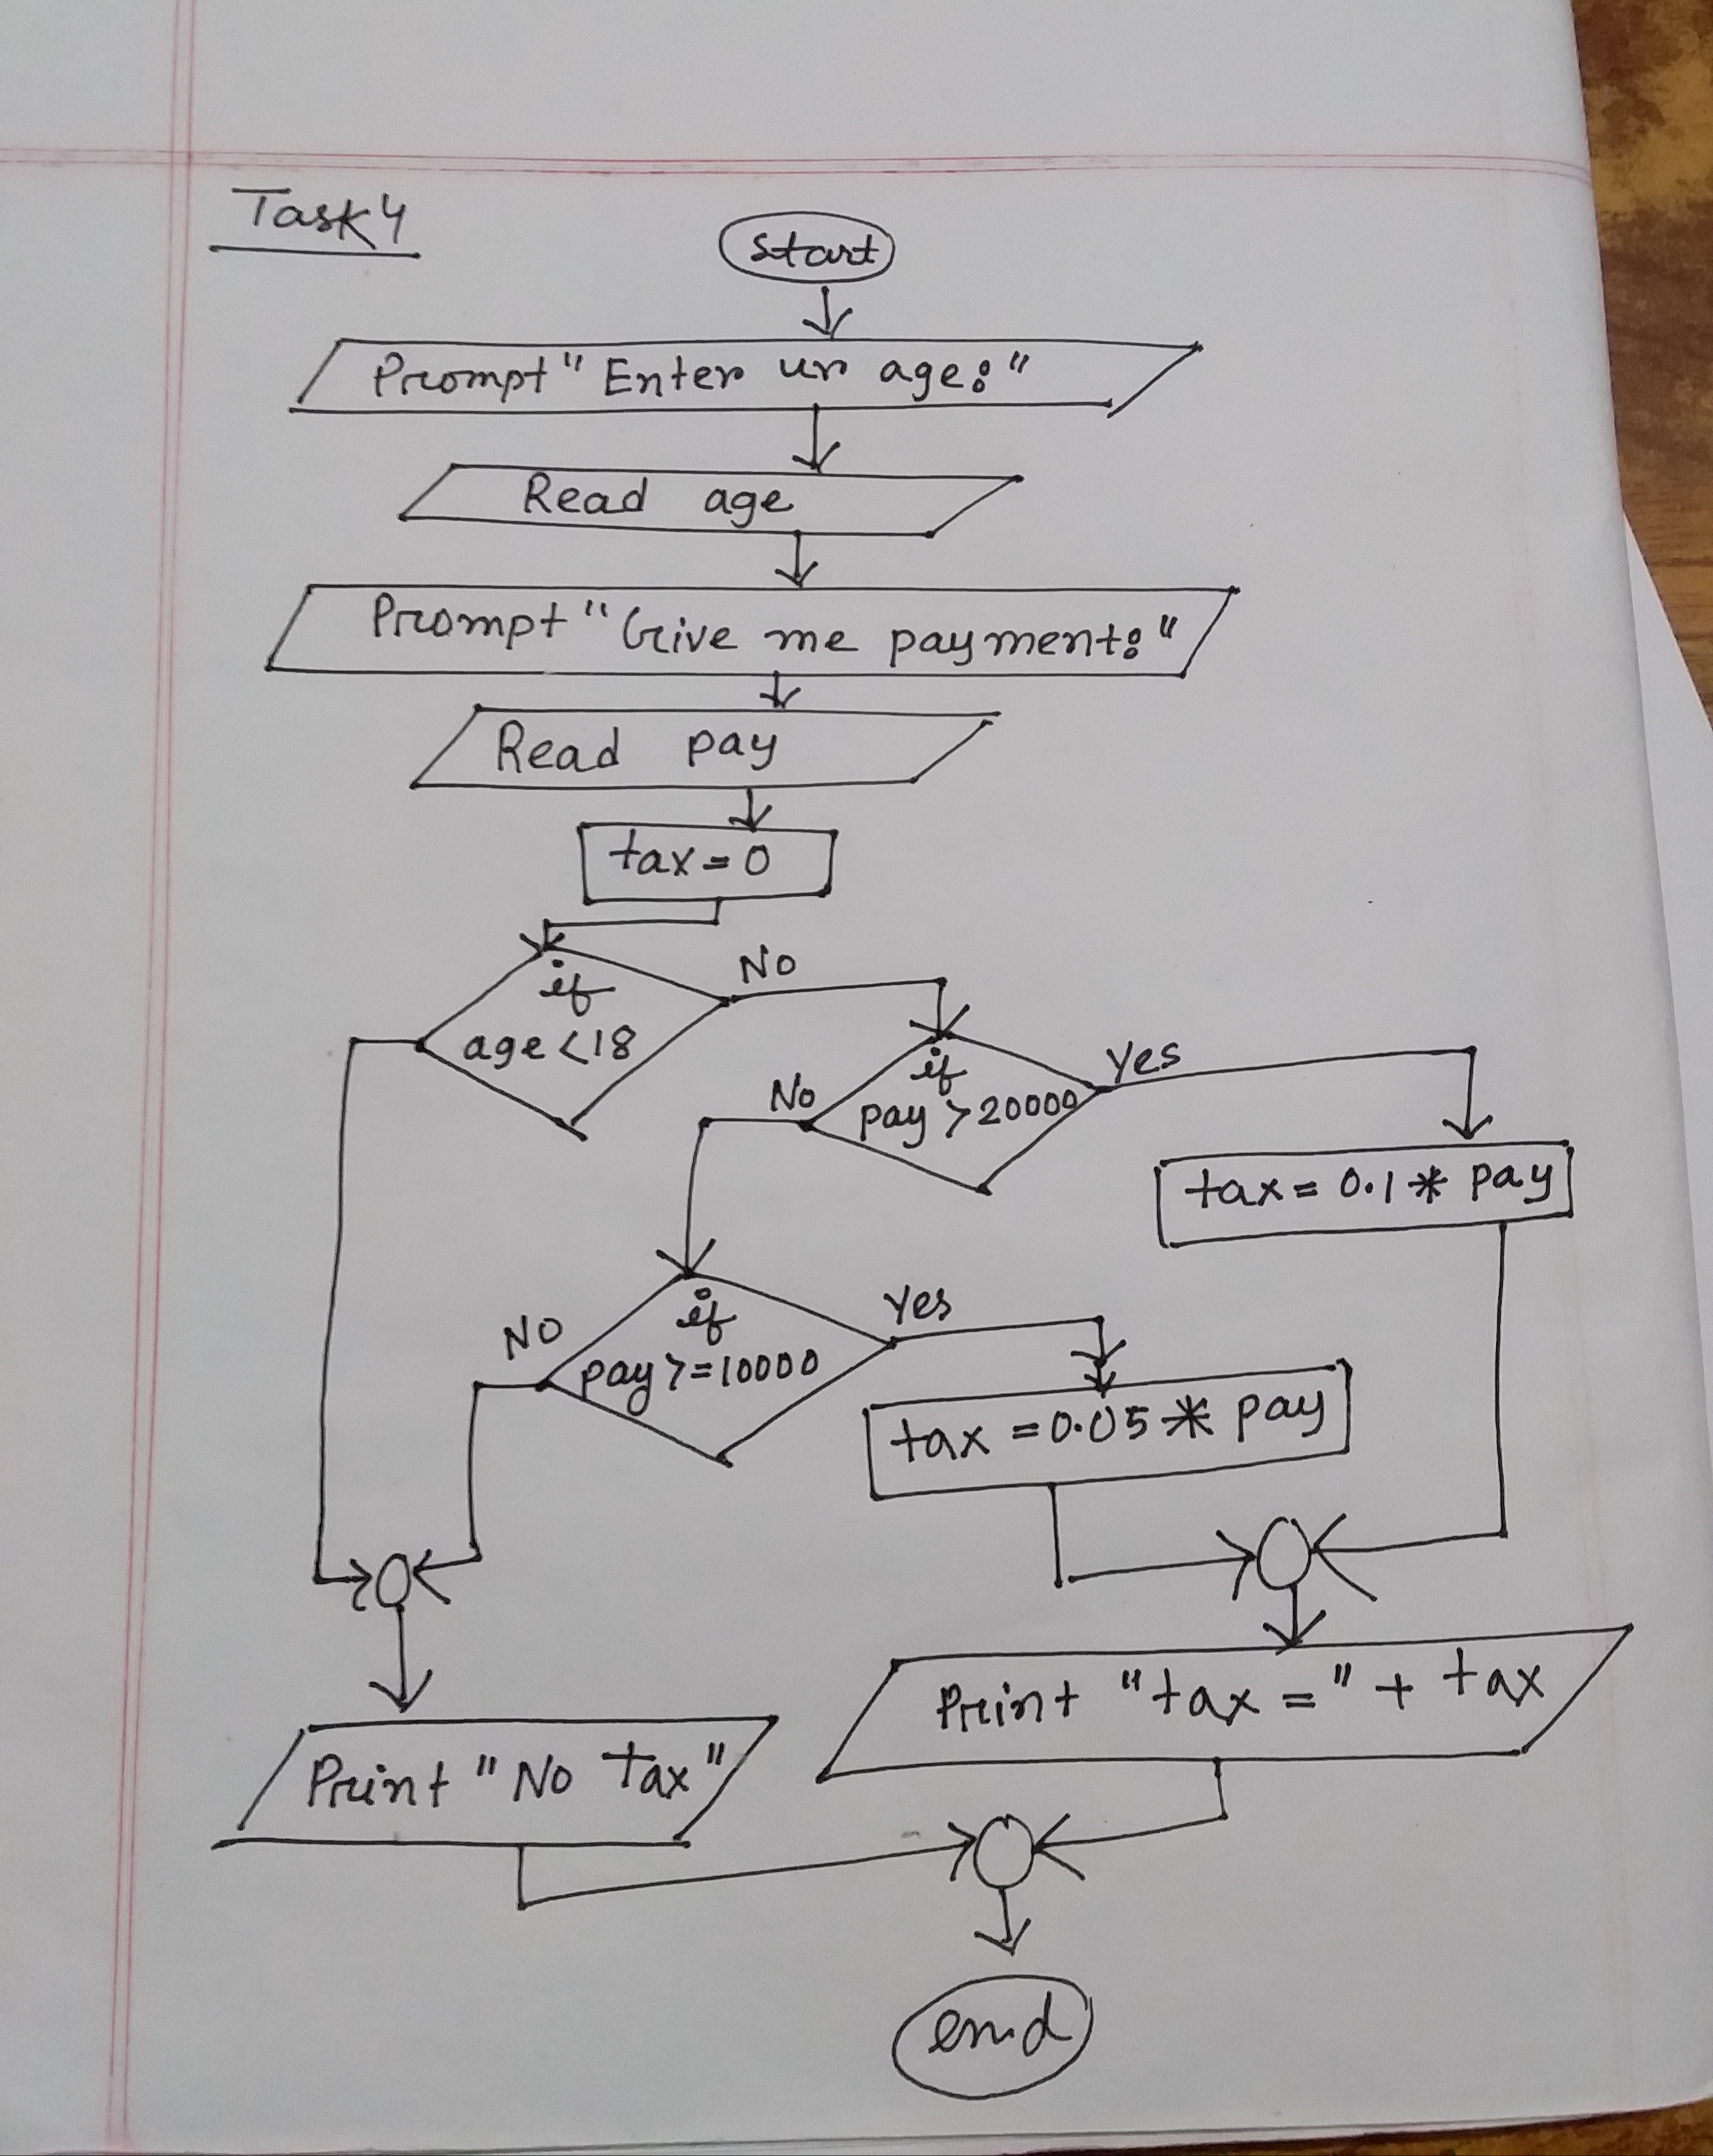 Task 4
start
Prompt "Enter ur age:"
Read age
Prompt "Give me payment:"
Read pay
tax = 0
if
age < 18
No
if
pay > 20000
No
Yes
tax = 0.1 * pay
if
pay >= 10000
NO
Yes
tax = 0.05 * pay
Print "tax =" + tax
Print "No Tax"
end